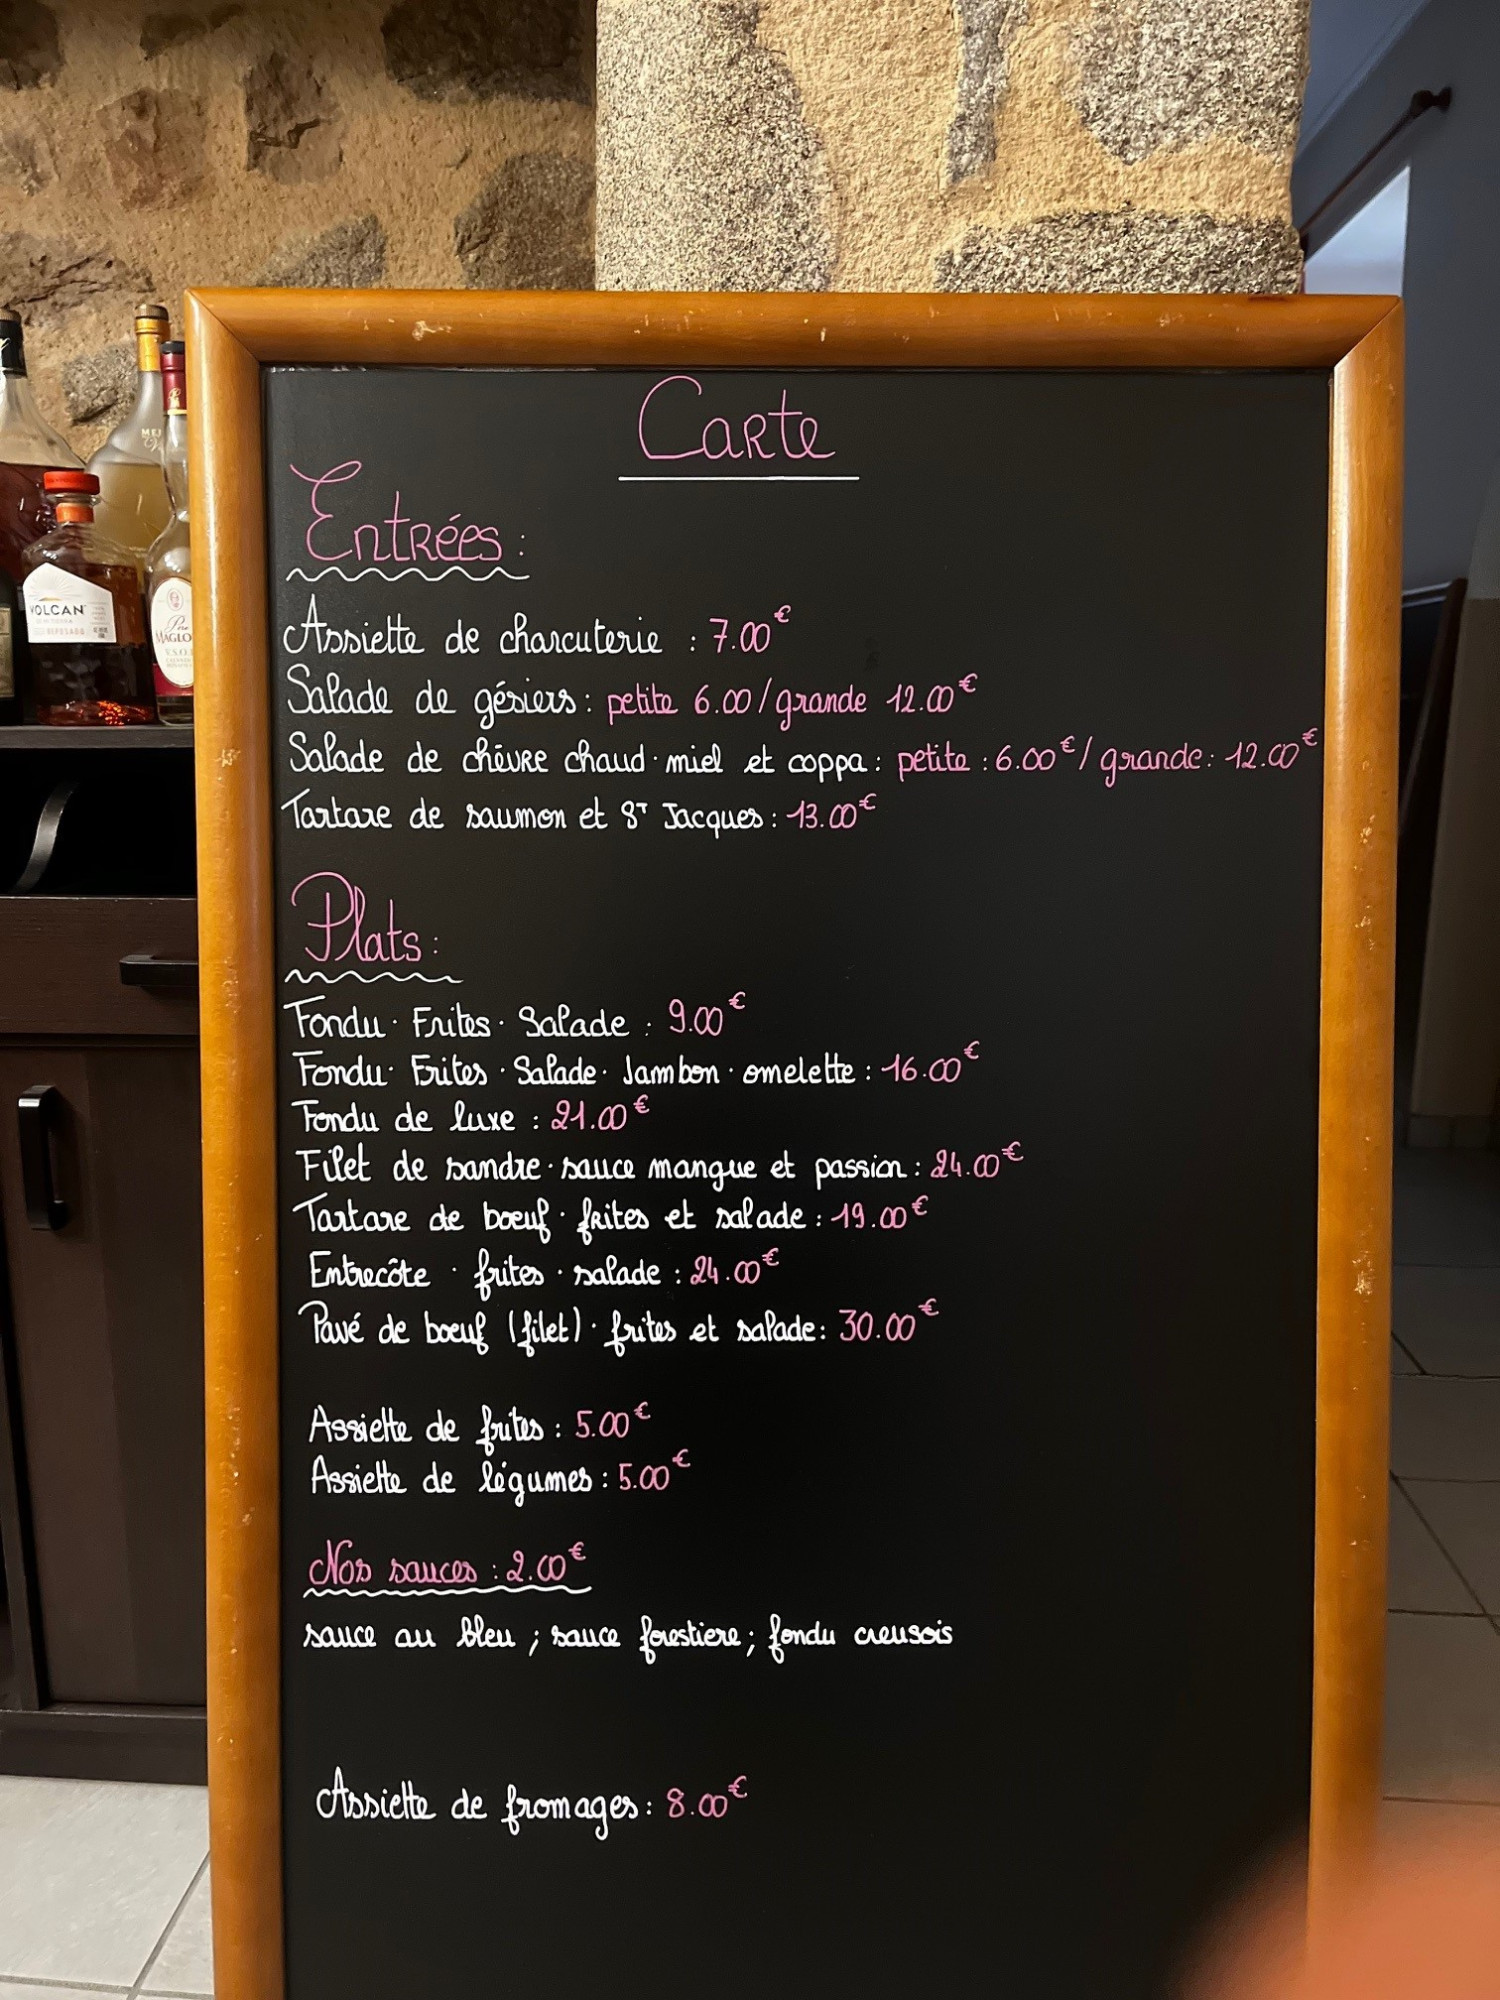 Carte
Entrées :
Assiette de charcuterie : 7.00€
Salade de gésiers : petite 6.00 / grande 12.00€
Salade de chèvre chaud · miel et coppa : petite : 6.00€ / grande : 12.00€
Tartare de saumon et ST Jacques : 13.00€
Plats :
Fondu · Frites · Salade : 9.00€
Fondu · Frites · Salade · Jambon · omelette : 16.00€
Fondu de luxe : 21.00€
Filet de sandre · sauce mangue et passion : 24.00€
Tartare de boeuf · frites et salade : 19.00€
Entrecôte · frites · salade : 24.00€
Pavé de boeuf (filet) · frites et salade : 30.00€
Assiette de frites : 5.00€
Assiette de légumes : 5.00€
Nos sauces : 2.00€
sauce au bleu ; sauce forestiere ; fondu creusois
Assiette de fromages : 8.00€
VOLCAN
REPOSADO
Père
MAGLO
V.S.O.